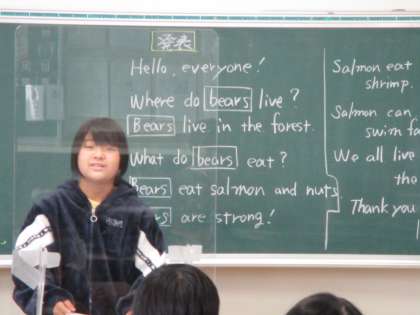 発表
Hello, everyone!
Where do bears live?
Bears live in the forest.
What do bears eat?
Bears eat salmon and nuts
are strong!
Salmon eat
shrimp.
Salmon can
swim f
We all live
the
Thank you